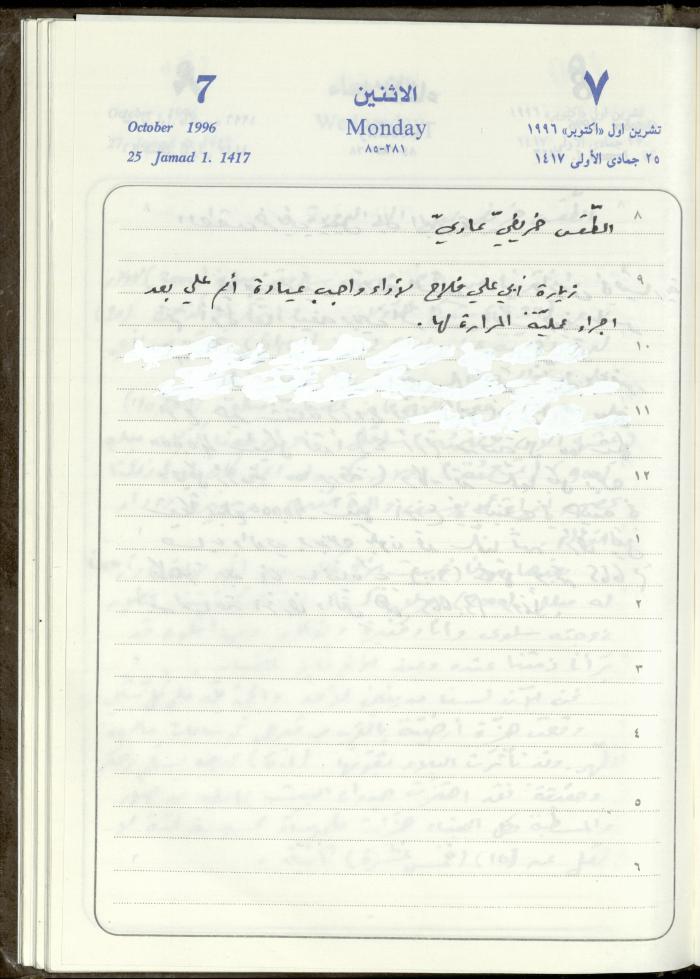 7 الاثنين ٧
October 1996 Monday تشرين اول «اكتوبر» ١٩٩٦
25 Jamad 1. 1417 ٢٨١-٨٥ ٢٥ جمادى الأولى ١٤١٧
٨
الطّقس خريفيّ عاديّ
٩
زيارة أبي علي فلاح لأداء واجب عيادة أم علي بعد
اجراء عمليّة المرارة لها.
١٠
١١
١٢
١
٢
٣
٤
٥
٦